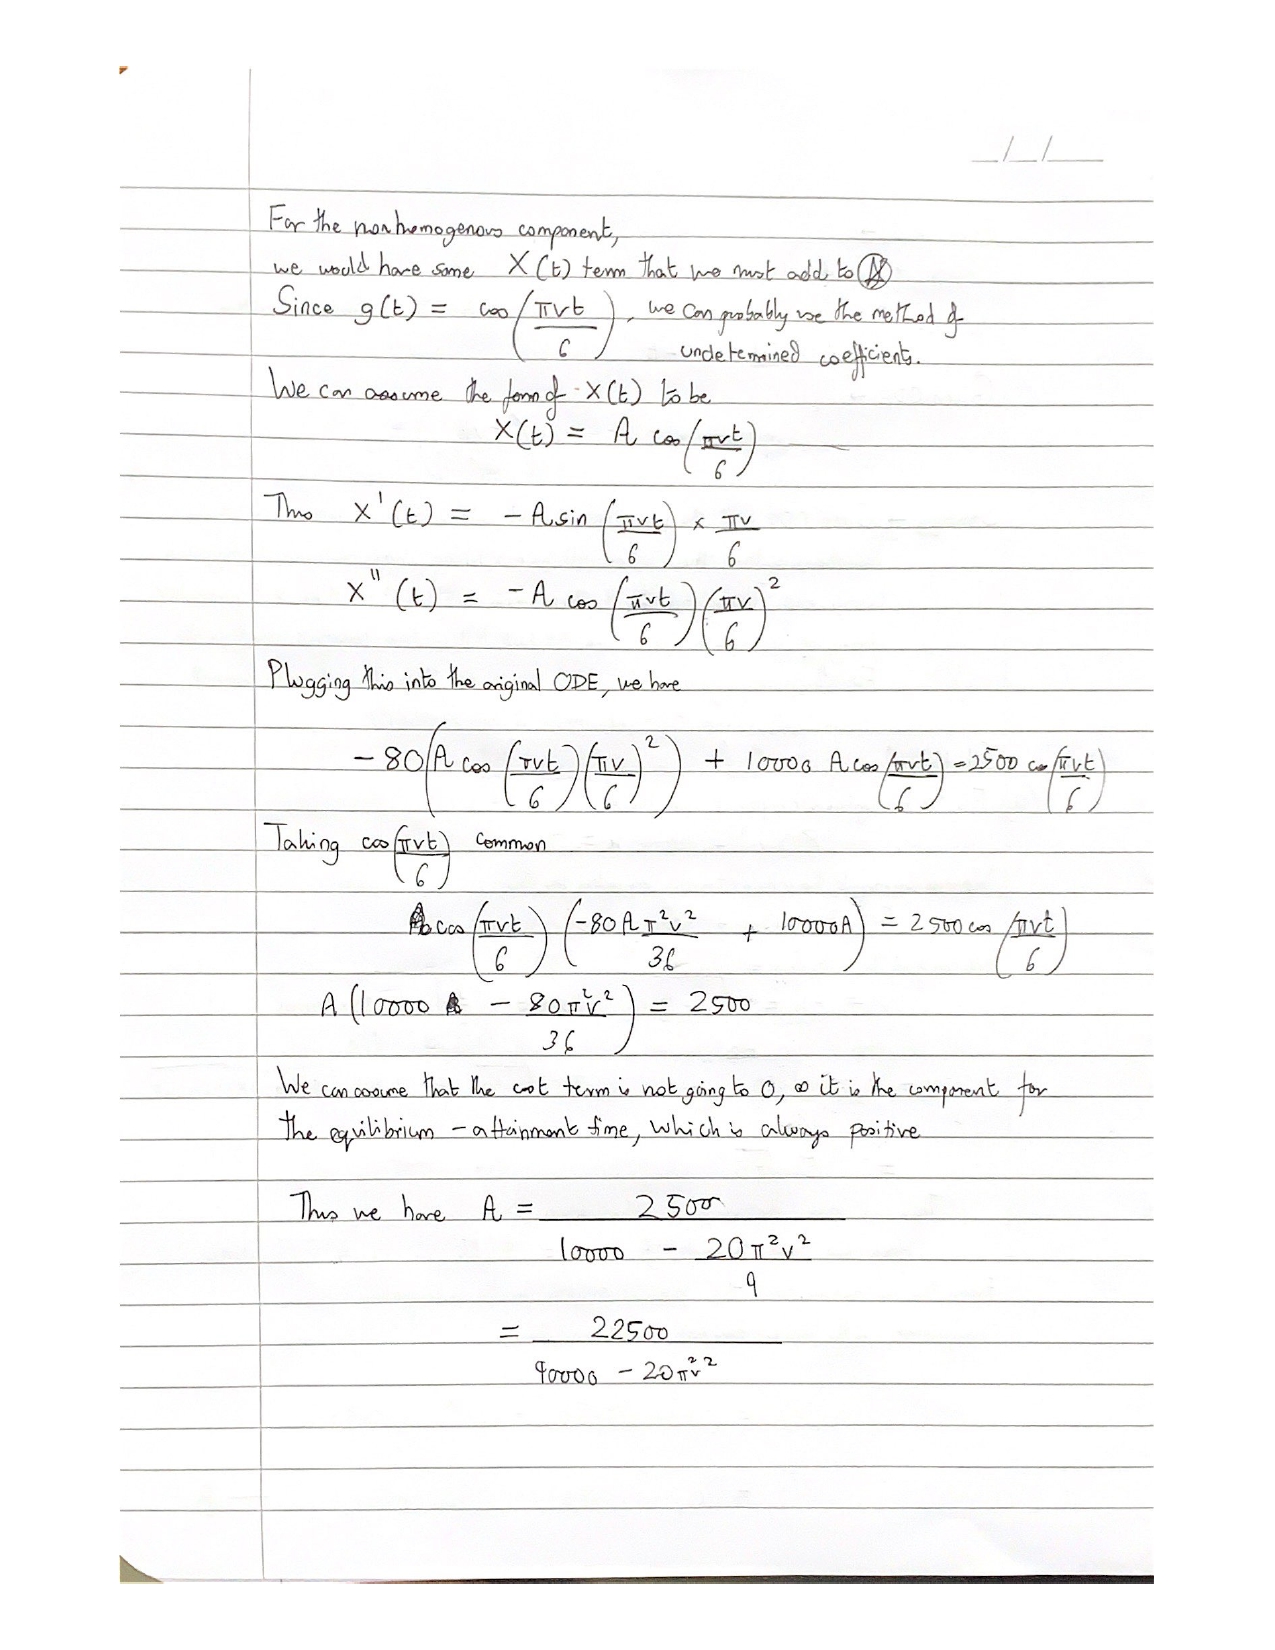 _/_/__
For the nonhomogenous component,
we would have some X(t) term that we must add to
Since g(t) = cos(πvt/6), we can probably use the method of
undetermined coefficients.
We can assume the form of X(t) to be
X(t) = A cos(πvt/6)
Thus X'(t) = - A sin(πvt/6) × πv/6
X"(t) = - A cos(πvt/6)(πv/6)²
Plugging this into the original ODE, we have
- 80(A cos(πvt/6)(πv/6)²) + 10000 A cos(πvt/6) = 2500 cos(πvt/6)
Taking cos(πvt/6) common
cos(πvt/6)(-80Aπ²v²/36 + 10000A) = 2500 cos(πvt/6)
A(10000 - 80π²v²/36) = 2500
We can assume that the cost term is not going to 0, as it is the component for
the equilibrium - attainment time, which is always positive
Thus we have A = 2500/(10000 - 20π²v²/9)
= 22500/(90000 - 20π²v²)